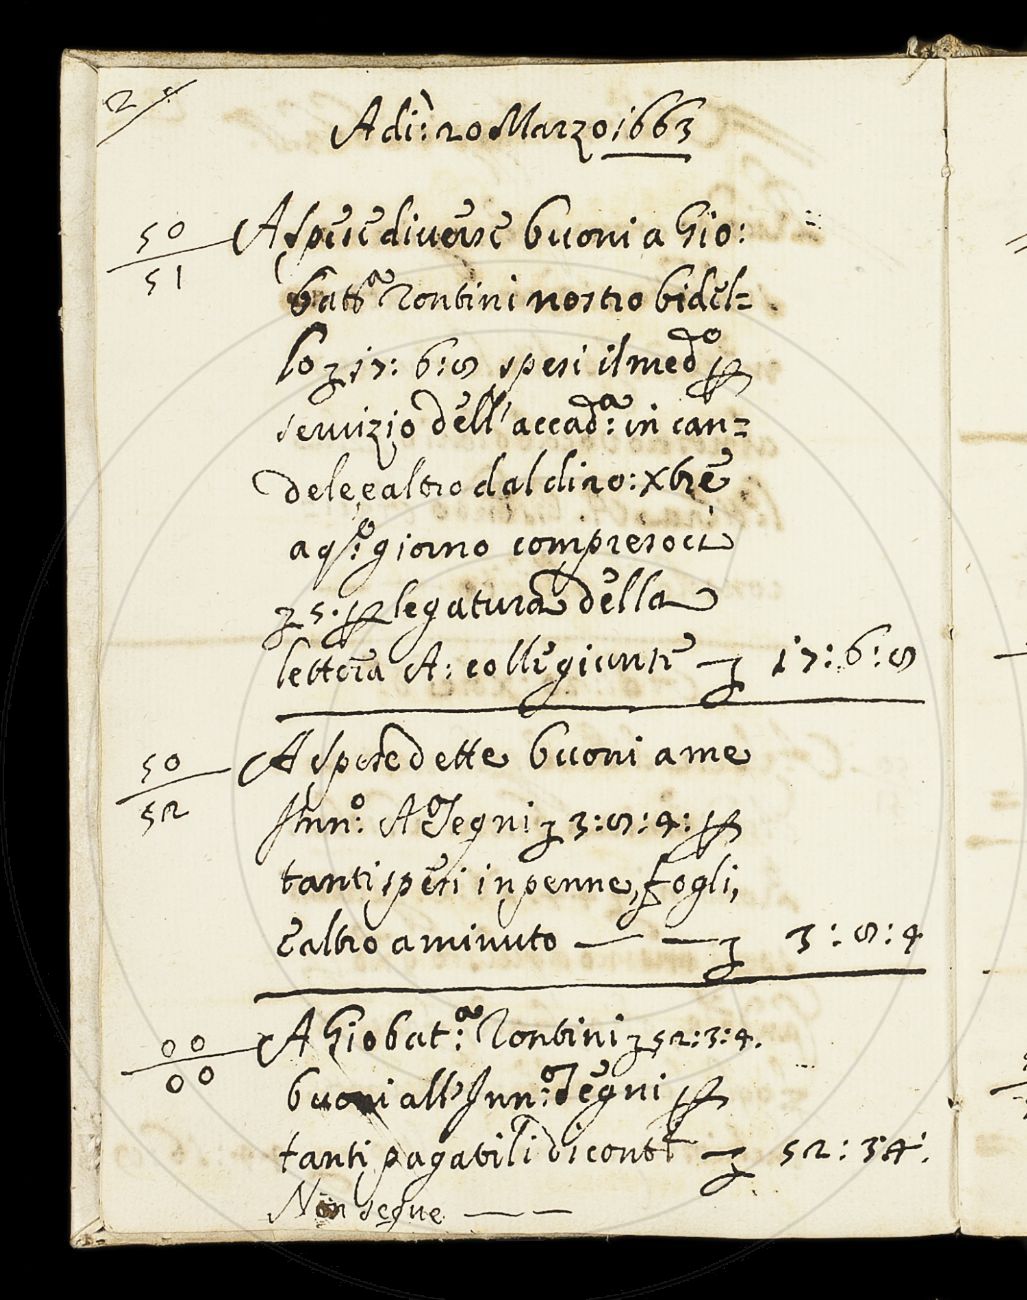 2
Adi: 20 Marzo 1663
50
51
A spese diverse buoni a Gio:
batta Rontini nostro bidel=
lo ʒ 17: 6: 8 spesi il medo p
servizio dell'accada: in can=
dele e altro dal di 20: Xbre
a qsto: giorno compresoci
ʒ 5. p legatura della
lettera A: collegiante — ʒ 17: 6: 8
50
52
A spese dette buoni a me
Innno: Ao Segni ʒ 3: 8: 4: p
tanti spesi in penne, fogli,
e altro a minuto — — ʒ 3: 8: 4
00
00
A Gio bat:a Rontini ʒ 52: 3: 4.
buoni all'Inn:o Segni p
tanti pagabili di contti — ʒ 52: 3: 4:
Non segue — —